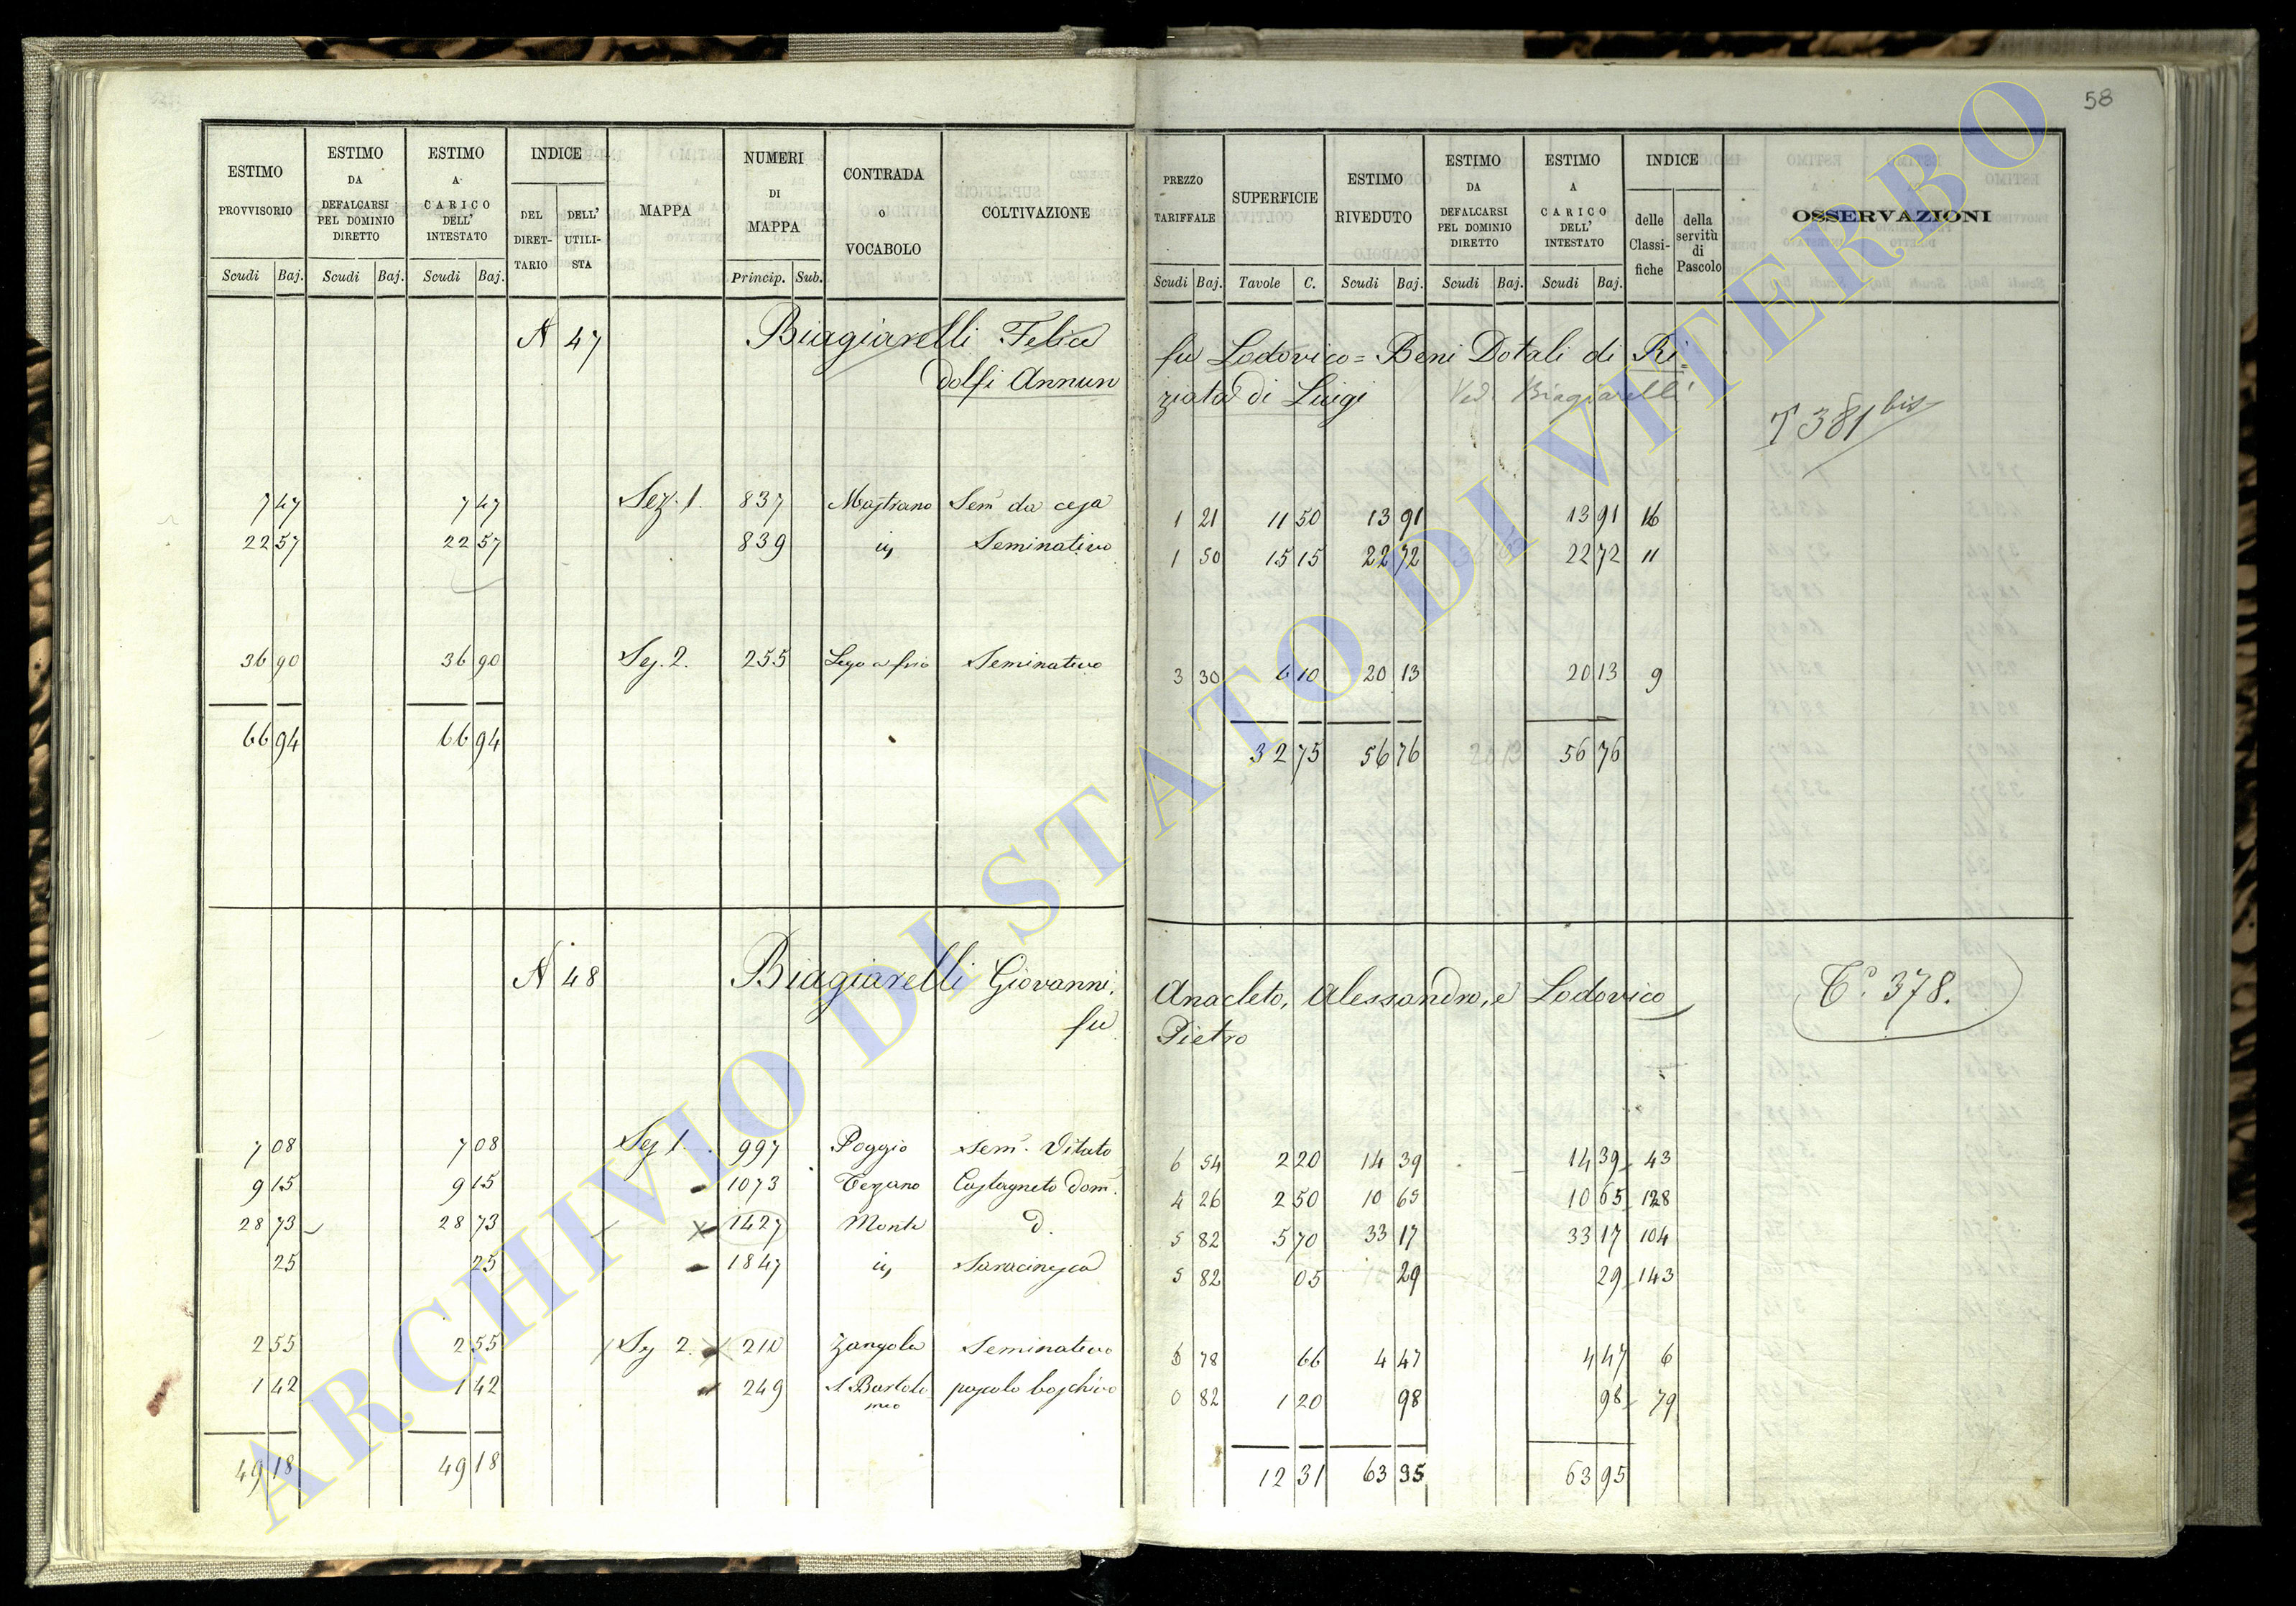 58
ESTIMO PROVVISORIO Scudi Baj. ESTIMO DA DEFALCARSI PEL DOMINIO DIRETTO Scudi Baj. ESTIMO A CARICO DELL' INTESTATO Scudi Baj. INDICE DEL DIRETTARIO DELL' UTILISTA MAPPA NUMERI DI MAPPA Princip. Sub. CONTRADA o VOCABOLO COLTIVAZIONE
PREZZO TARIFFALE Scudi Baj. SUPERFICIE Tavole C. ESTIMO RIVEDUTO Scudi Baj. ESTIMO DA DEFALCARSI PEL DOMINIO DIRETTO Scudi Baj. ESTIMO A CARICO DELL' INTESTATO Scudi Baj. INDICE delle Classifiche della servitù di Pascolo OSSERVAZIONI
N 47 Biagiarelli Felice fu Lodovico = Beni Dotali di Ri=
dolfi Annunziata di Luigi Ved. Biagiarelli T 381 bis
7 47 7 47 Sez. 1. 837 Mastrano Sem. da cesa 1 21 11 50 13 91 13 91 16
22 57 22 57 839 is Seminativo 1 50 15 15 22 72 22 72 11
36 90 36 90 Sez. 2. 255 Seminativo 3 30 6 10 20 13 20 13 9
66 94 66 94 32 75 56 76 20 13 56 76
N 48 Biagiarelli Giovanni, Anacleto, Alessandro, e Lodovico T.º 378.
fu Pietro
7 08 7 08 Sez 1. 997 Poggio Sem. Vitato 6 54 2 20 14 39 14 39 43
9 15 9 15 1073 Terzano Castagneto dom. 4 26 2 50 10 65 10 65 128
28 73 28 73 1427 Monte d. 5 82 5 70 33 17 33 17 104
25 25 1847 is Saracinesca 5 82 05 29 29 143
2 55 2 55 Sez 2. 210 Zangola Seminativo 6 78 66 4 47 4 47 6
1 42 1 42 249 S. Bartolomeo pascolo boschivo 0 82 1 20 98 98 79
49 18 49 18 12 31 63 95 63 95
ARCHIVIO DI STATO DI VITERBO